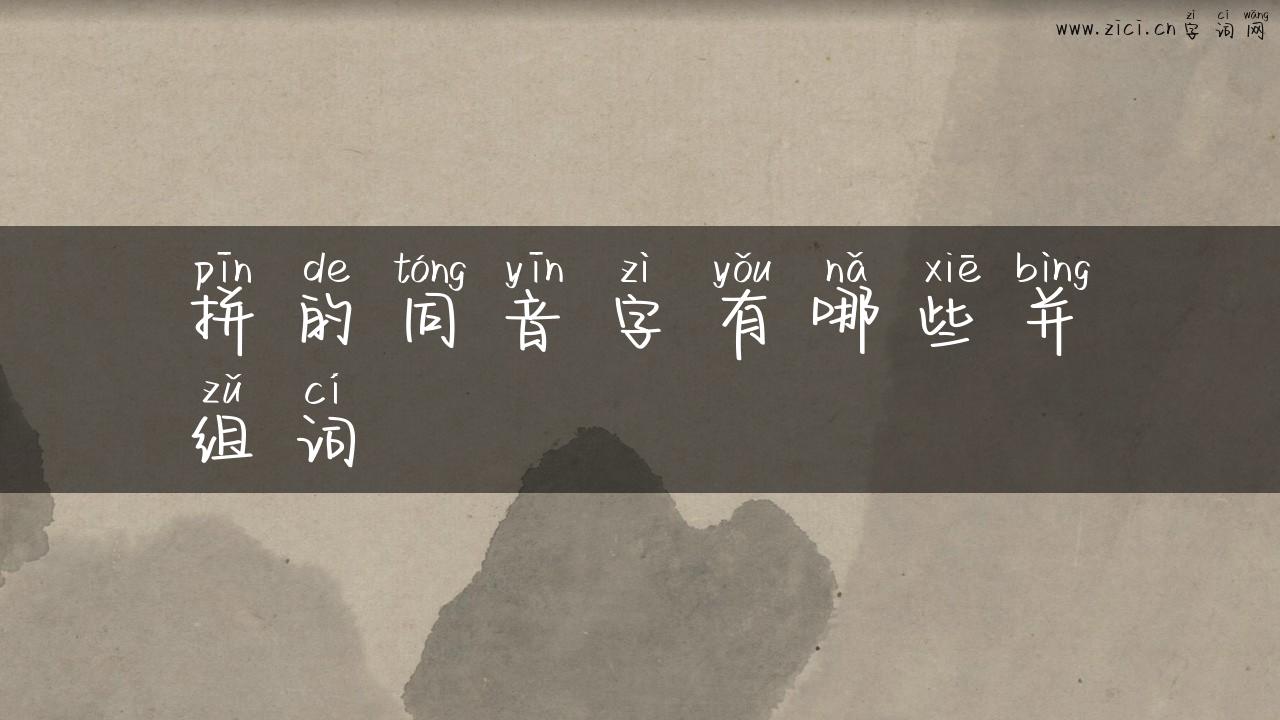 zì cí wǎng
www.zici.cn 字词网
pīn de tóng yīn zì yǒu nǎ xiē bìng
拼的同音字有哪些并
zǔ cí
组词